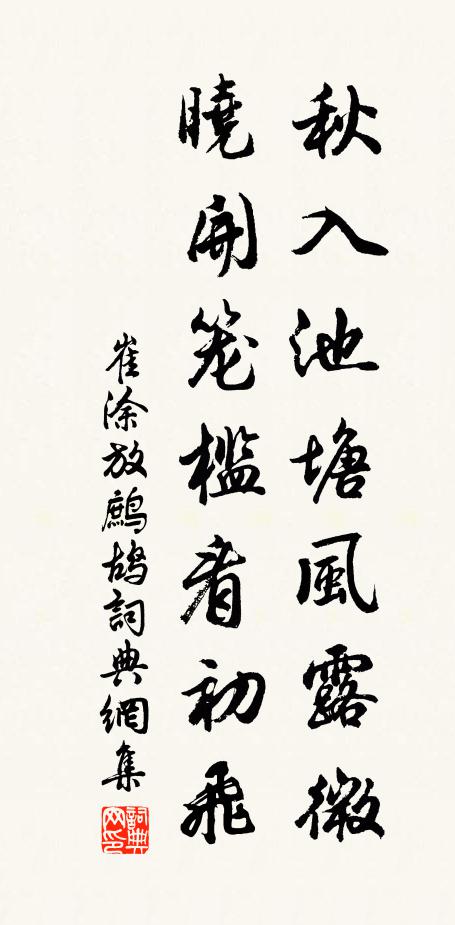 秋入池塘風露微
曉開笼檻看初飛
崔涂放鷓鴣詞典網集
詞典网印